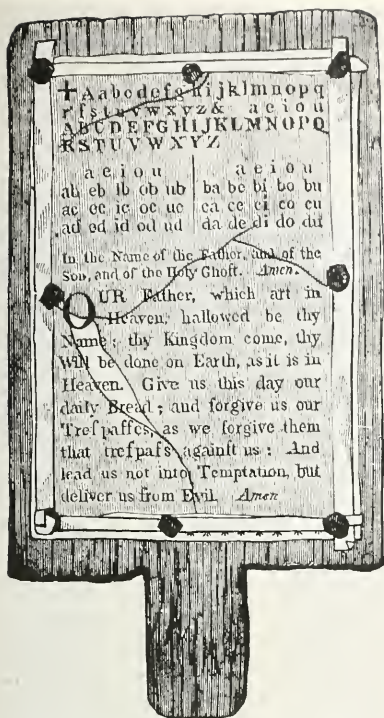 ✝ A a b c d e f g h i j k l m n o p q
r ſ s t u v w x y z & a e i o u
A B C D E F G H I J K L M N O P Q
R S T U V W X Y Z
a e i o u a e i o u
ab eb ib ob ub ba be bi bo bu
ac ec ic oc uc ca ce ci co cu
ad ed id od ud da de di do du
In the Name of the Father, and of the
Son, and of the Holy Ghoſt. Amen.
OUR Father, which art in
Heaven, hallowed be thy
Name; thy Kingdom come, thy
Will be done on Earth, as it is in
Heaven. Give us this day our
daily Bread; and forgive us our
Treſpaſſes, as we forgive them
that treſpaſs againſt us: And
lead us not into Temptation, but
deliver us from Evil. Amen